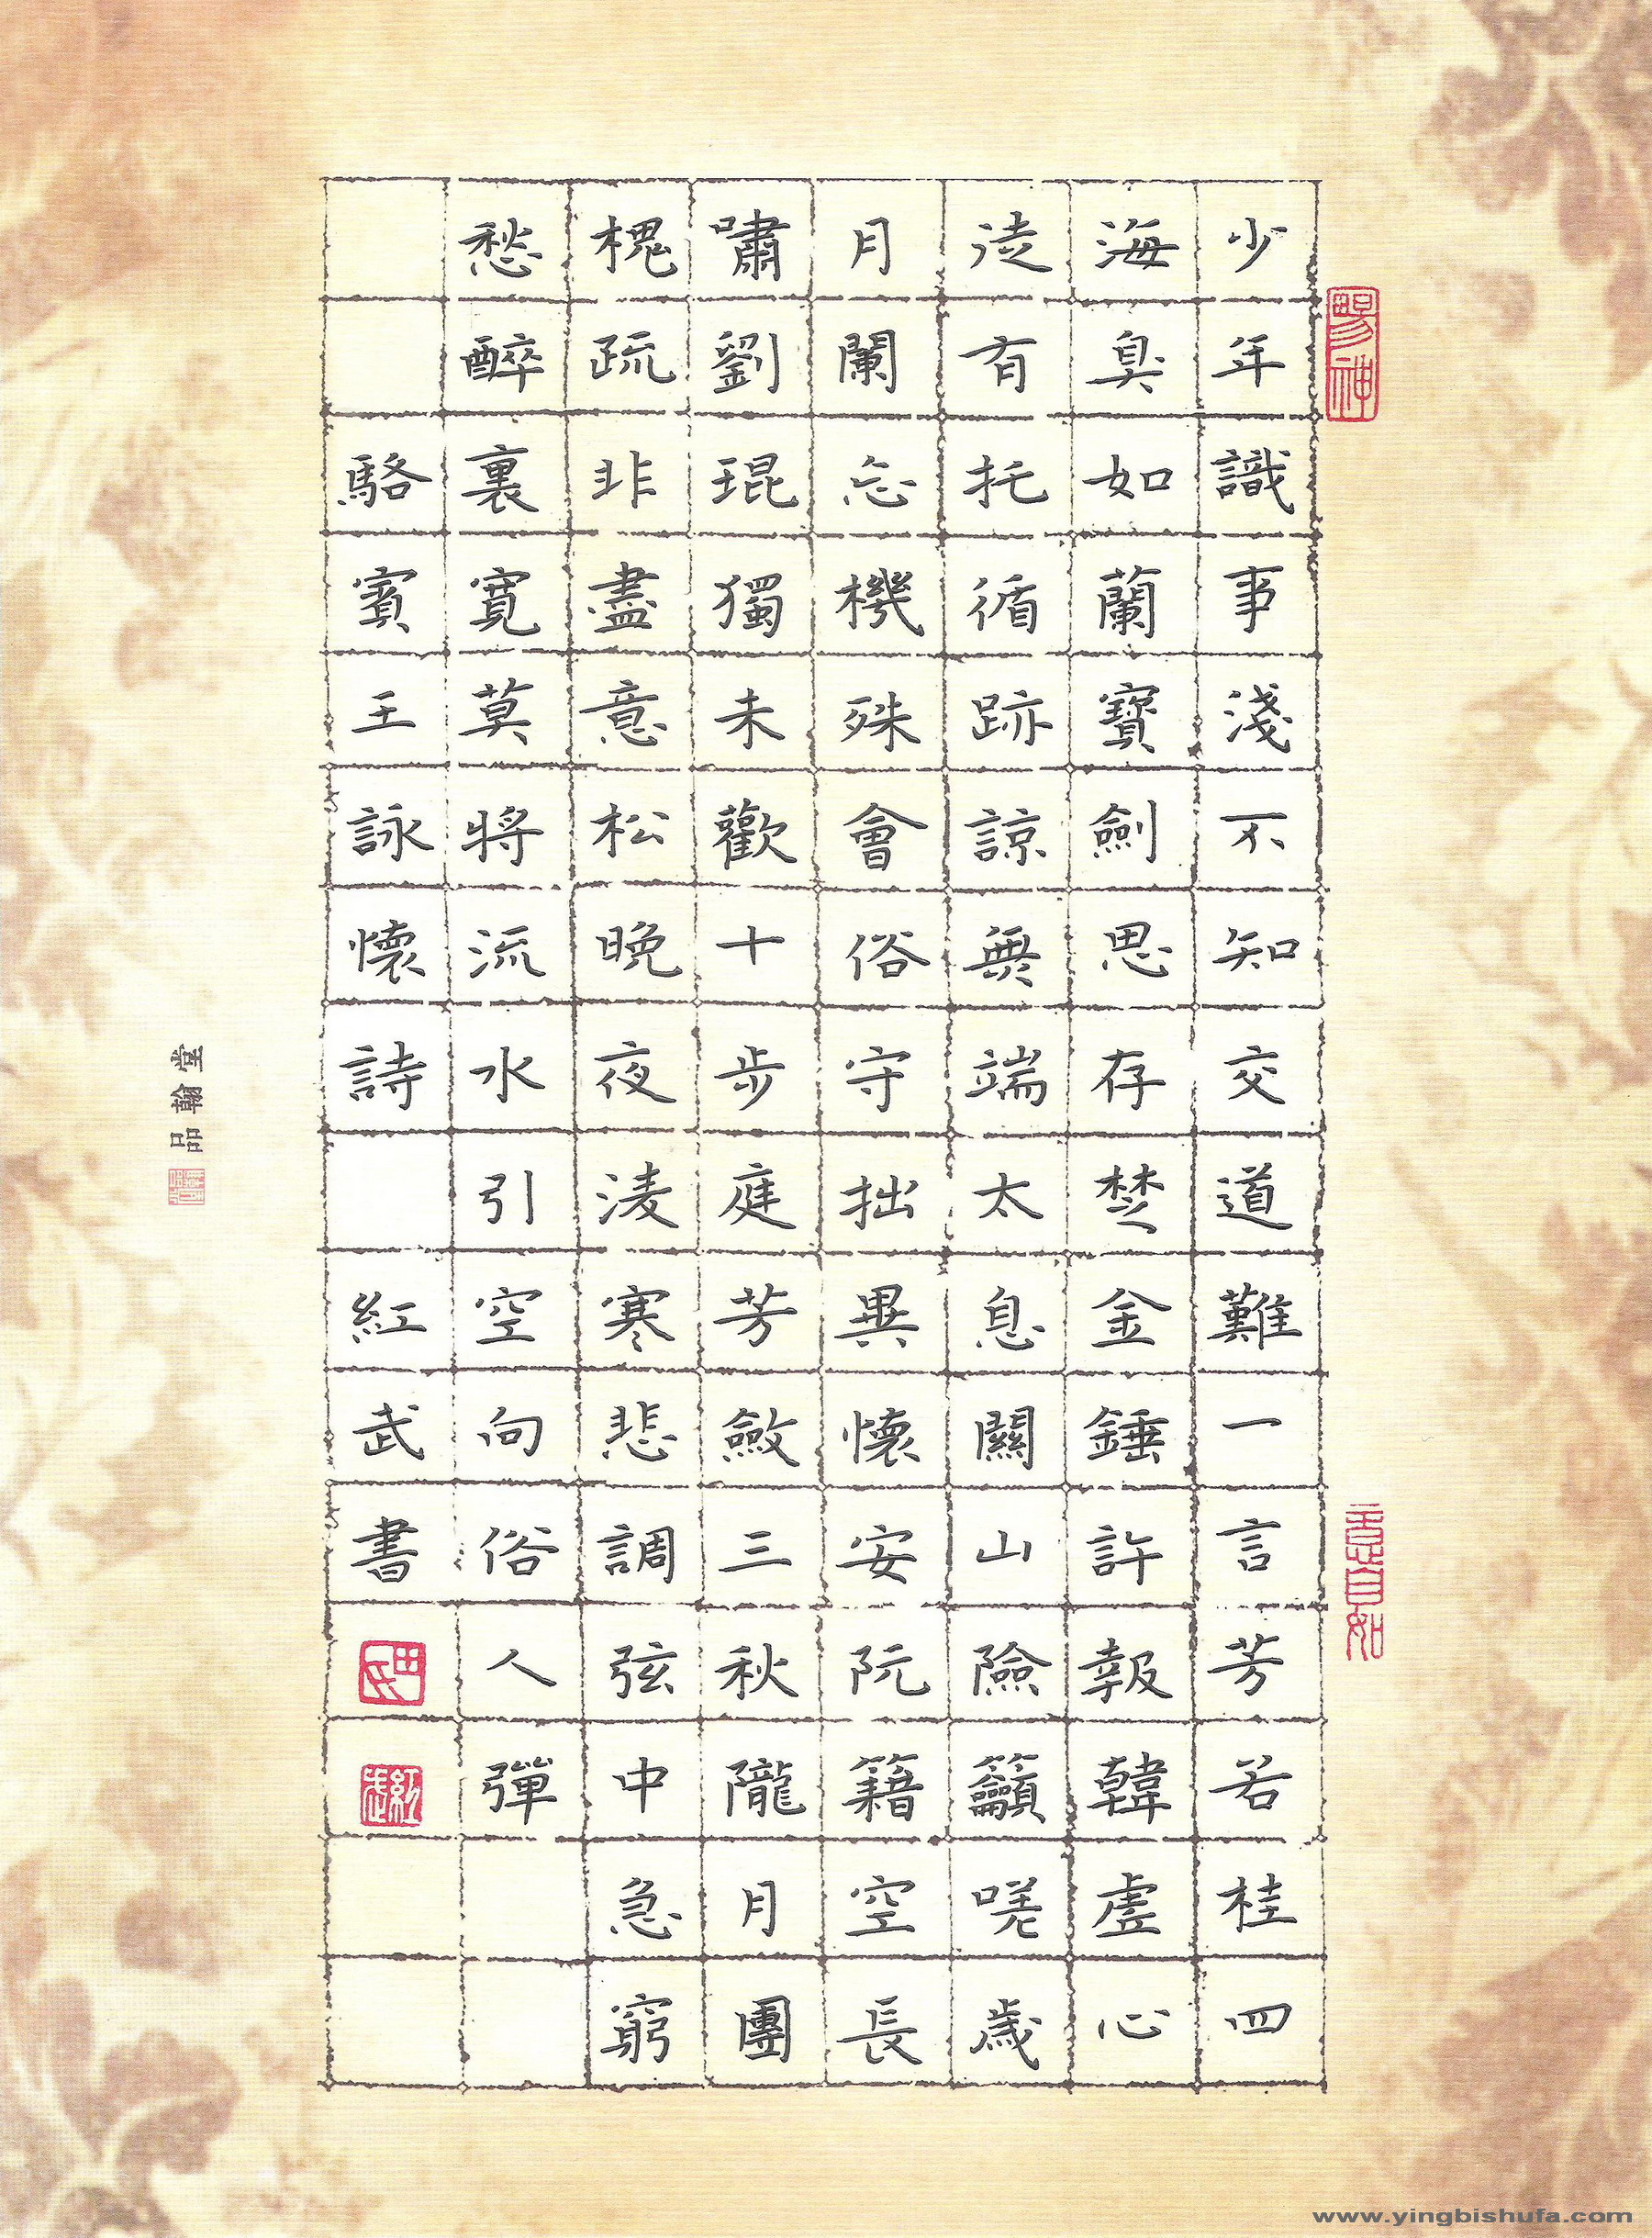 少年識事淺不知交道難一言芳若桂四
海臭如蘭寶劍思存楚金錘許報韓虛心
徒有托循跡諒無端太息關山險籲嗟歲
月闌忘機殊會俗守拙異懷安阮籍空長
嘯劉琨獨未歡十步庭芳斂三秋隴月團
槐疏非盡意松晚夜淩寒悲調弦中急窮
愁醉裏寬莫將流水引空向俗人彈
駱賓王詠懷詩 紅武書
田氏
紅武
暢神
品翰堂
www.yingbishufa.com